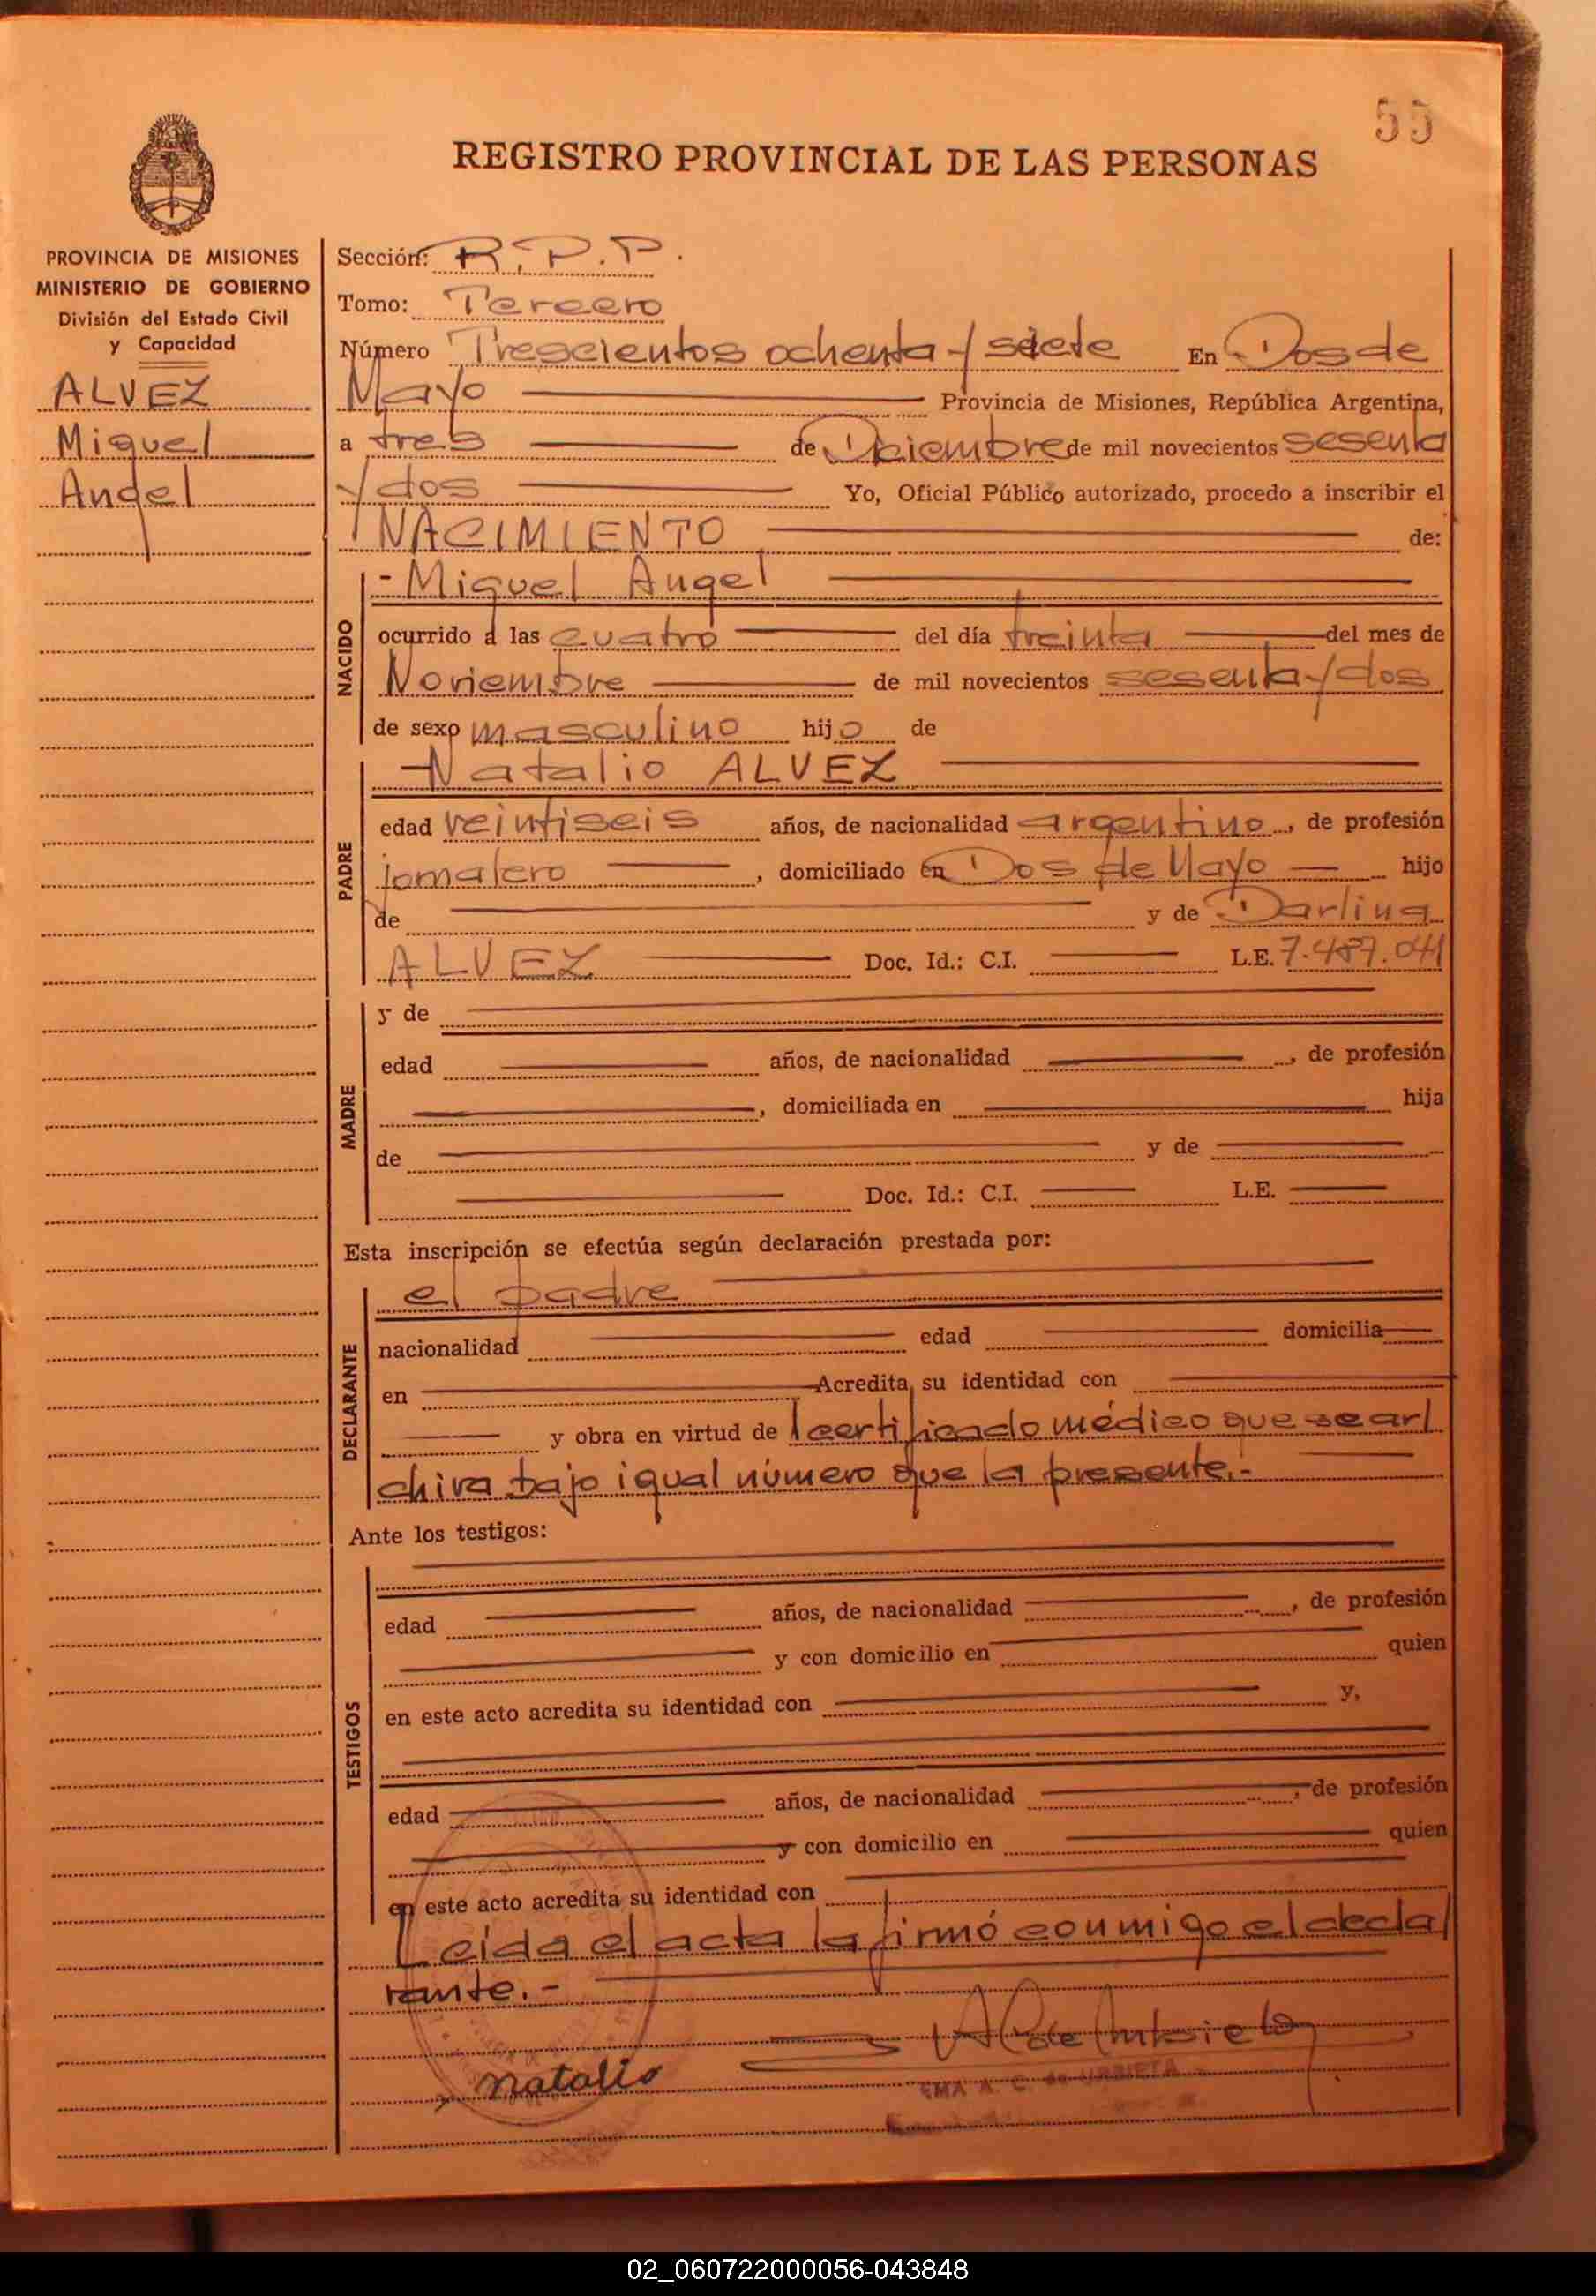 55
REGISTRO PROVINCIAL DE LAS PERSONAS
PROVINCIA DE MISIONES
MINISTERIO DE GOBIERNO
División del Estado Civil
y Capacidad
ALVEZ
Miguel
Angel
Sección: R.P.P.
Tomo: Tercero
Número Trescientos ochenta y siete En Dos de
Mayo Provincia de Misiones, República Argentina,
a tres de Diciembre de mil novecientos sesenta
y dos Yo, Oficial Público autorizado, procedo a inscribir el
NACIMIENTO de:
NACIDO
- Miguel Angel
ocurrido a las cuatro del día treinta del mes de
Noviembre de mil novecientos sesenta y dos
de sexo masculino hijo de
PADRE
Natalio ALVEZ
edad veintiseis años, de nacionalidad argentino, de profesión
jornalero, domiciliado en Dos de Mayo hijo
de y de Darlina
ALVEZ Doc. Id.: C.I. L.E. 7.487.041
MADRE
y de
edad años, de nacionalidad , de profesión
, domiciliada en hija
de y de
Doc. Id.: C.I. L.E.
Esta inscripción se efectúa según declaración prestada por:
DECLARANTE
el padre
nacionalidad edad domicilia
en Acredita su identidad con
y obra en virtud de certificado médico que se ar/
chiva bajo igual número que la presente.-
Ante los testigos:
TESTIGOS
edad años, de nacionalidad , de profesión
y con domicilio en quien
en este acto acredita su identidad con y,
edad años, de nacionalidad , de profesión
y con domicilio en quien
en este acto acredita su identidad con
Leída el acta la firmó conmigo el decla/
rante.-
natalio
EMA A. C. de URBIETA
02_060722000056-043848